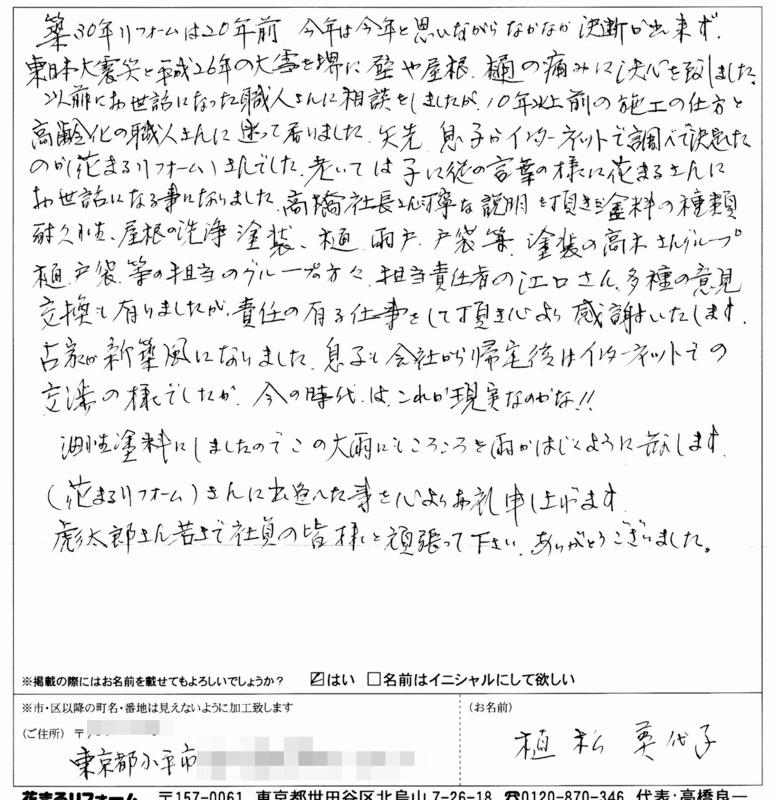 築30年リフォームは20年前 今年は今年と思いながらなかなか決断が出来ず.
東日本大震災と平成26年の大雪を堺に壁や屋根.樋の痛みに決心を致しました.
以前にお世話になった職人さんに相談をしましたが、10年以上前の施工の仕方と
高齢化の職人さんに迷って居りました.矢先.息子がインターネットで調べて決定した
のが(花まるリフォーム)さんでした.老いては子に従の言葉の様に花まるさんに
お世話になる事になりました.高橋社長さん丁寧な説明を頂き塗料の種類
耐久性、屋根の洗浄 塗装、樋 雨戸.戸袋等.塗装の高木さんグループ
樋.戸袋.等の担当のグループの方々.担当責任者の江口さん.多種の意見
交換も有りましたが.責任の有る仕事をして頂き心より感謝いたします.
古家が新築風になりました.息子も会社から帰宅後はインターネットでの
交渉の様でしたが.今の時代は、これが現実なのかな!!
油性塗料にしましたのでこの大雨にもころころと雨がはじくように致します.
(花まるリフォーム)さんに出逢えた事を心よりお礼申し上げます.
太郎さん若さで社員の皆様と頑張って下さい.ありがとうございました。
※掲載の際にはお名前を載せてもよろしいでしょうか? ☑はい □名前はイニシャルにして欲しい
※市・区以降の町名・番地は見えないように加工致します
(お名前)
(ご住所) 〒
東京都小平市
植松 英代子
花まるリフォーム 〒157-0061 東京都世田谷区北烏山7-26-18 ☎0120-870-346 代表:高橋良一